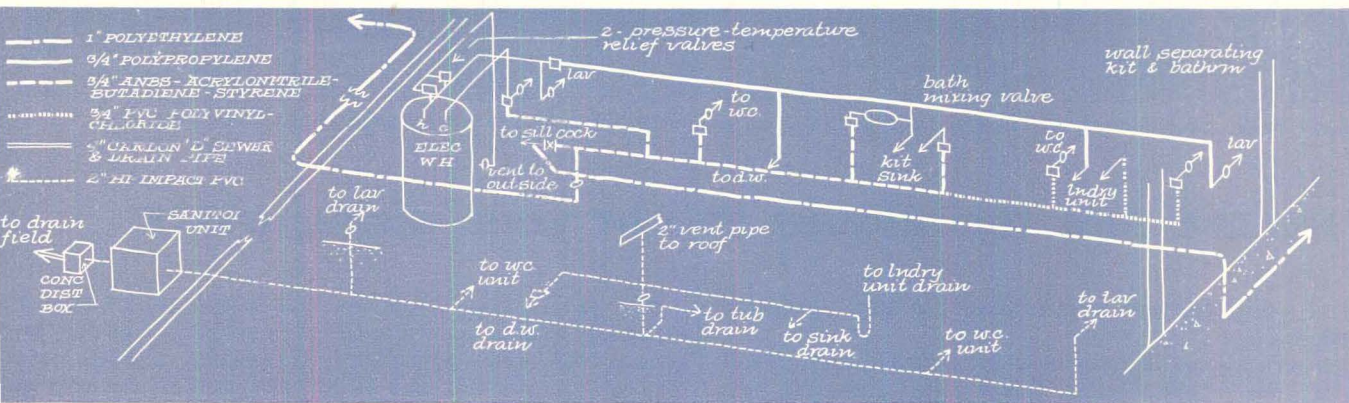 1" POLYETHYLENE
3/4" POLYPROPYLENE
3/4" ANBS-ACRYLONITRILE-
BUTADIENE-STYRENE
3/4" PVC POLYVINYL-
CHLORIDE
CARLON 'D' SEWER
& DRAIN PIPE
2" HI IMPACT PVC
2-pressure-temperature
relief valves
wall separating
kit & bathrm
lav
bath
mixing valve
to
w.c.
h c
ELEC
WH
to sill cock
vent to
outside
to d.w.
kit
sink
to
w.c.
lndry
unit
lav
to drain
field
SANITOI
UNIT
CONC
DIST
BOX
to lav
drain
2" vent pipe
to roof
to w.c.
unit
to d.w.
drain
to tub
drain
to lndry
unit drain
to sink
drain
to w.c.
unit
to lav
drain